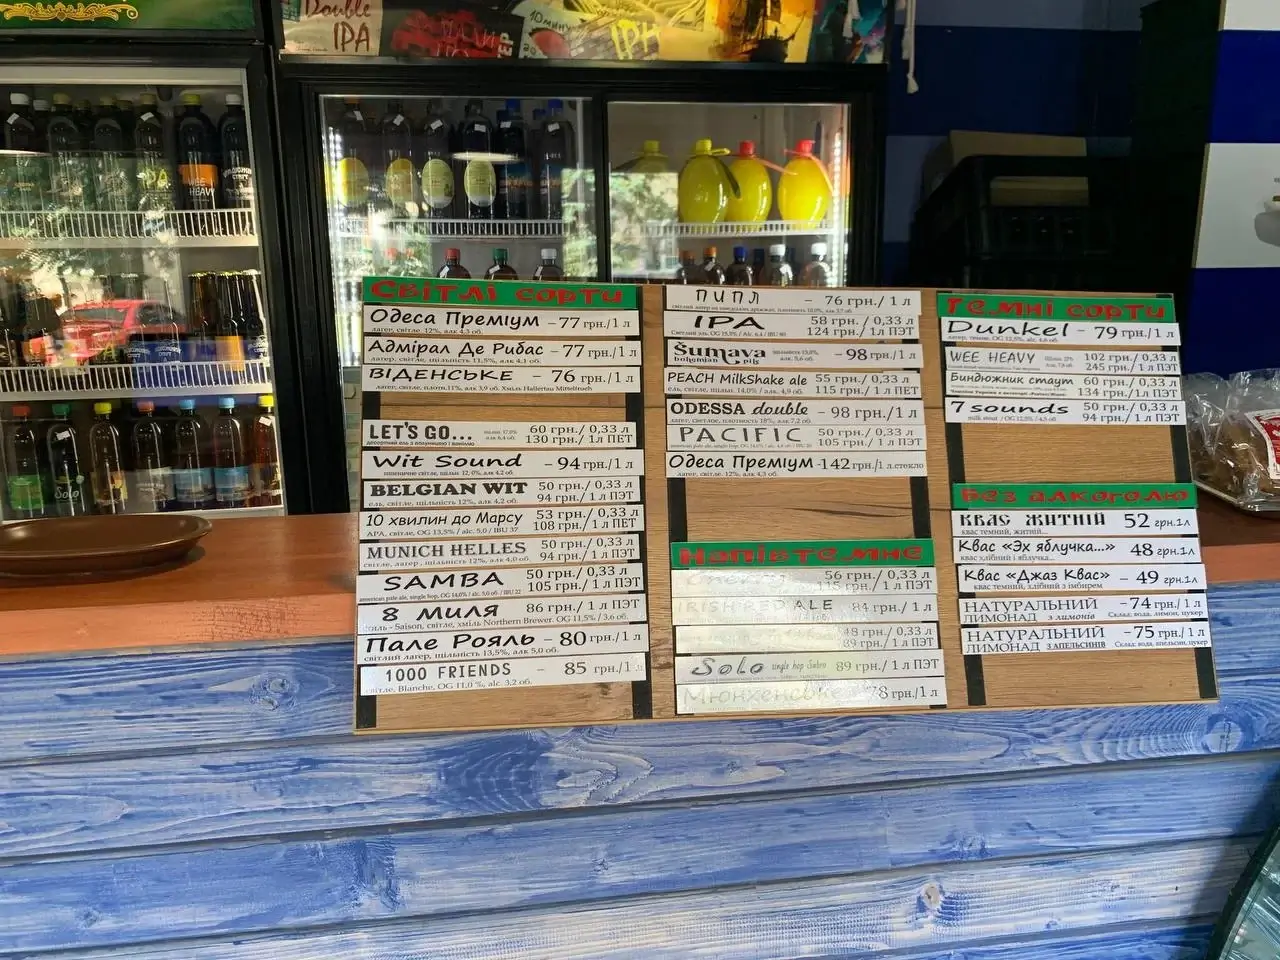 Double
IPA
IPA
WEE
HEAVY
Solo
Світлі сорти
Одеса Преміум – 77 грн./1 л
лагер, світле 12%, алк 4,3 об.
Адмірал Де Рибас – 77 грн./1 л
лагер, світле, щільність 11,5%, алк 4,1 об.
ВІДЕНСЬКЕ – 76 грн./1 л
лагер, світле, плотн.11%, алк 3,9 об. Хміль Hallertau Mittelfrueh
LET'S GO... 60 грн./ 0,33 л
130 грн./ 1 л ПЕТ
Wit Sound – 94 грн./1 л
пшеничне світле, щільн. 12, 0% алк 4,2 об.
BELGIAN WIT 50 грн./ 0,33 л
ель, світле, щільність 12%, алк 4,2 об. 94 грн./ 1 л ПЭТ
10 хвилин до Марсу 53 грн./ 0,33 л
APA, світле, OG 13,5% / alc. 5,0 / IBU 37 108 грн./ 1 л ПЕТ
MUNICH HELLES 50 грн./ 0,33 л
світле, лагер , щільність 12%, алк 4,0 об. 94 грн./ 1 л ПЭТ
SAMBA 50 грн./ 0,33 л
american pale ale, single hop, OG 14,0% / alc. 5,0 об. / IBU 22 105 грн./ 1 л ПЭТ
8 миля 86 грн./ 1 л ПЭТ
- Saison, світле, хміль Northern Brewer. OG 11,5% / 3,6 об.
Пале Рояль – 80 грн./1 л
світлий лагер, щільність 13,5%, алк 5,0 об.
1000 FRIENDS – 85 грн./ 1 л
світле, Blanche, OG 11,0 %, alc. 3,2 об.
ПИПЛ – 76 грн./ 1 л
IPA 58 грн./ 0,33 л
124 грн./ 1 л ПЭТ
Šumava – 98 грн./1 л
bohemian pils
PEACH MilkShake ale 55 грн./ 0,33 л
ель, світле, щільн. 14,0% / алк. 4,9 об. 115 грн./ 1 л ПЕТ
ODESSA double – 98 грн./ 1 л
лагер, світле, плотность 18%, алк 7,2 об.
PACIFIC 50 грн./ 0,33 л
105 грн./ 1 л ПЭТ
Одеса Преміум -142 грн./1 л.стекло
лагер, світле 12%, алк 4,3 об.
Напівтемне
56 грн./ 0,33 л
115 грн./ 1 л ПЭТ
IRISH RED ALE 84 грн./ 1 л
48 грн./ 0,33 л
89 грн./ 1 л ПЭТ
Solo single hop 89 грн./ 1 л ПЭТ
Мюнхенське 78 грн./1 л
Темні сорти
Dunkel – 79 грн./1 л
лагер, темне, OG 12,5%, alc. 4,6 об.
WEE HEAVY 102 грн./ 0,33 л
245 грн./ 1 л ПЭТ
Биндюжник стаут 60 грн./ 0,33 л
134 грн./ 1 л ПЭТ
7 sounds 50 грн./ 0,33 л
milk stout / OG 12,5% / 4,5 об 94 грн./ 1 л ПЭТ
Без алкоголю
КВАС ЖИТНІЙ 52 грн.1л
квас темний, житній...
Квас «Эх яблучка...» – 48 грн.1л
квас хлібний і яблучка...
Квас «Джаз Квас» – 49 грн.1л
квас темний, хлібний з імбирем
НАТУРАЛЬНИЙ –74 грн./ 1 л
ЛИМОНАД з лимонів Склад: вода, лимон, цукер
НАТУРАЛЬНИЙ –75 грн./ 1 л
ЛИМОНАД з апельсинів Склад: вода, апельсин, цукер